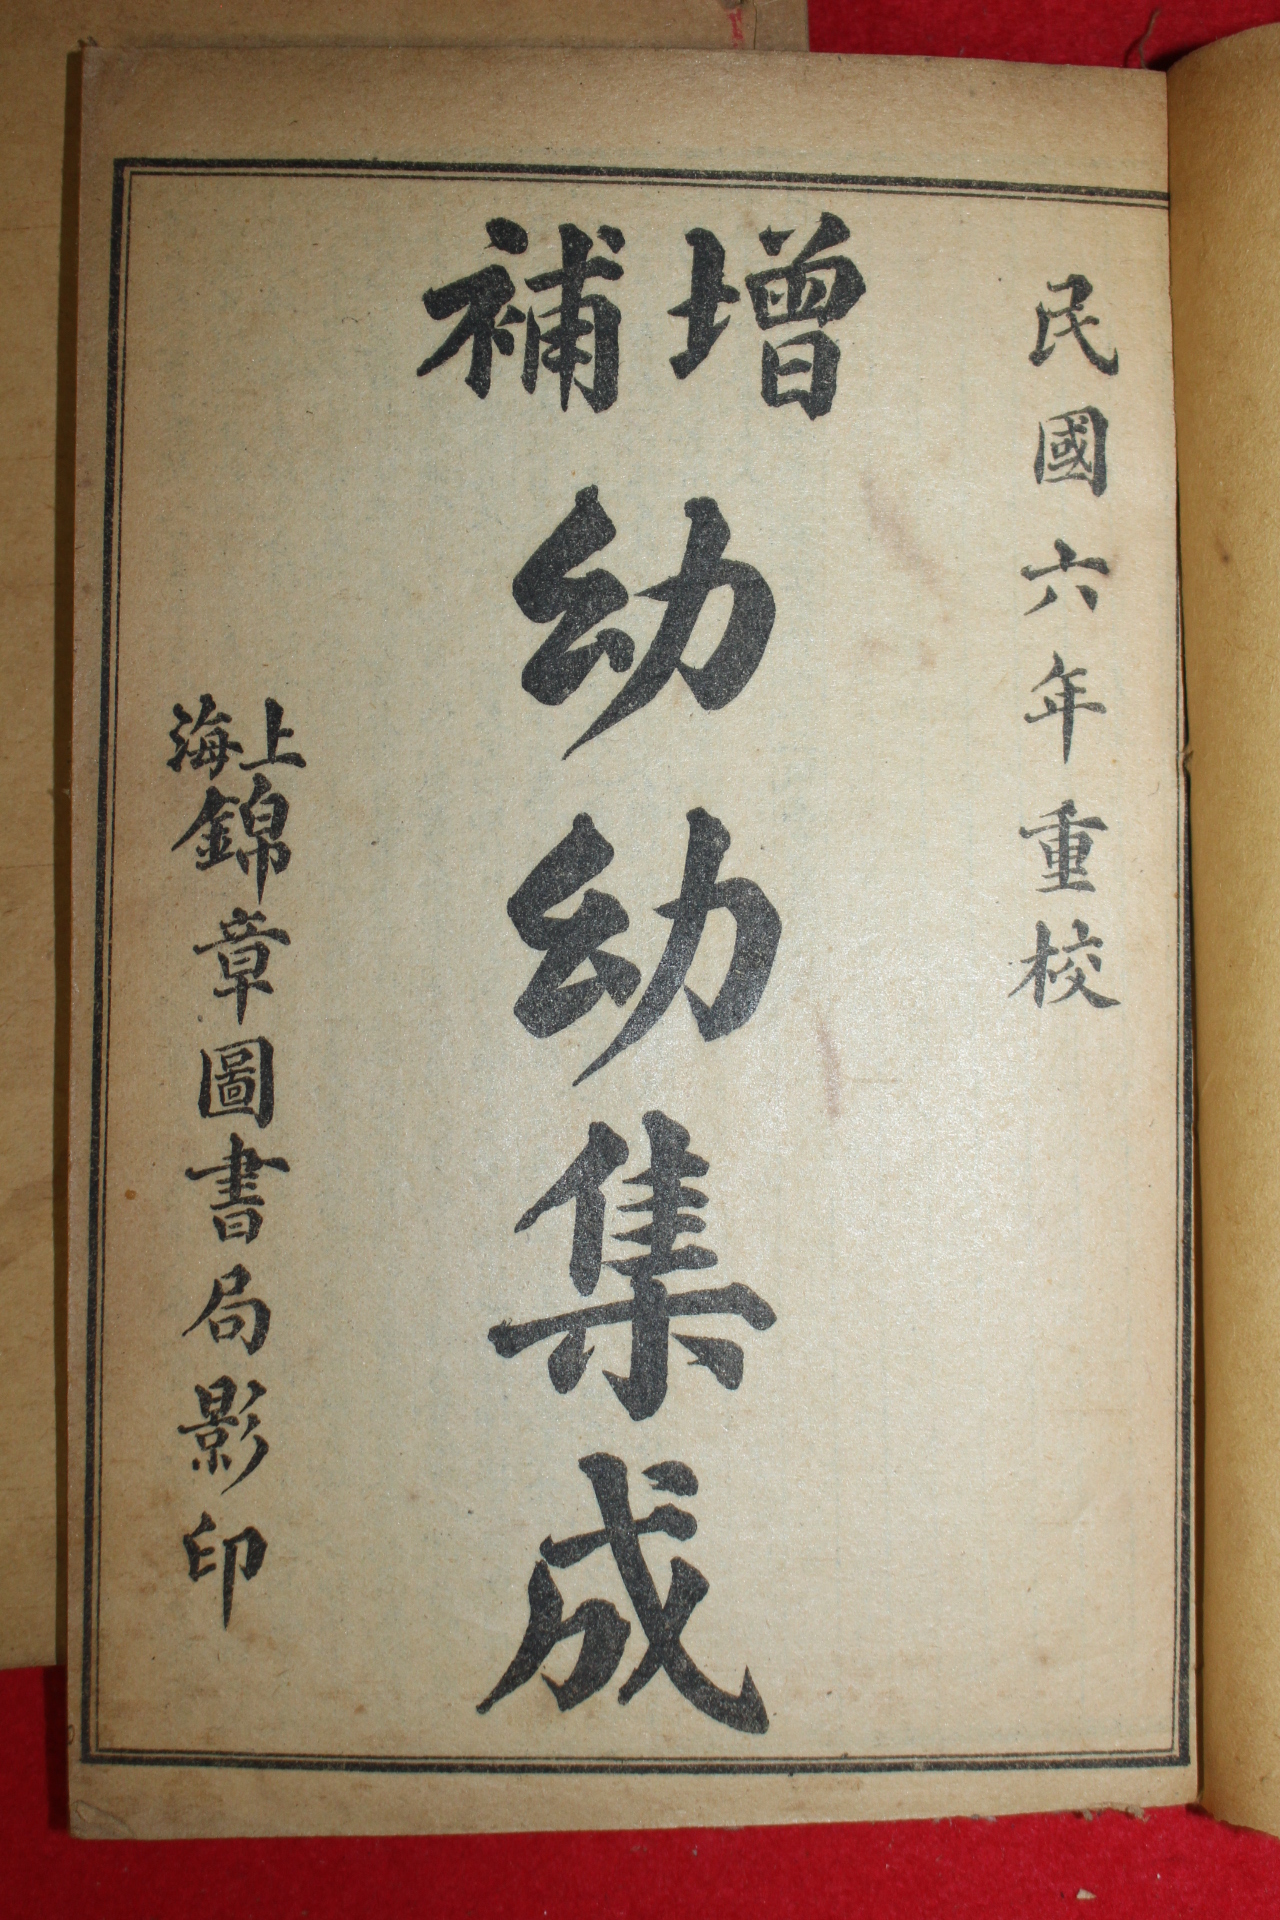 民國六年重校
增補
幼幼集成
上海
錦章圖書局影印